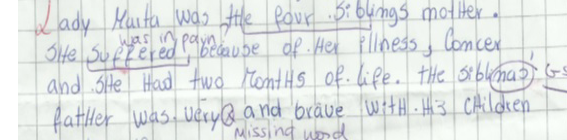 Lady Marta was tHe four siblings motHer.
was in payn
SHe Suffered because of Her illness, Concer
and SHe Had two MontHs of life. tHe siblings'
fatHer was very and brave witH His CHildren
Missing word